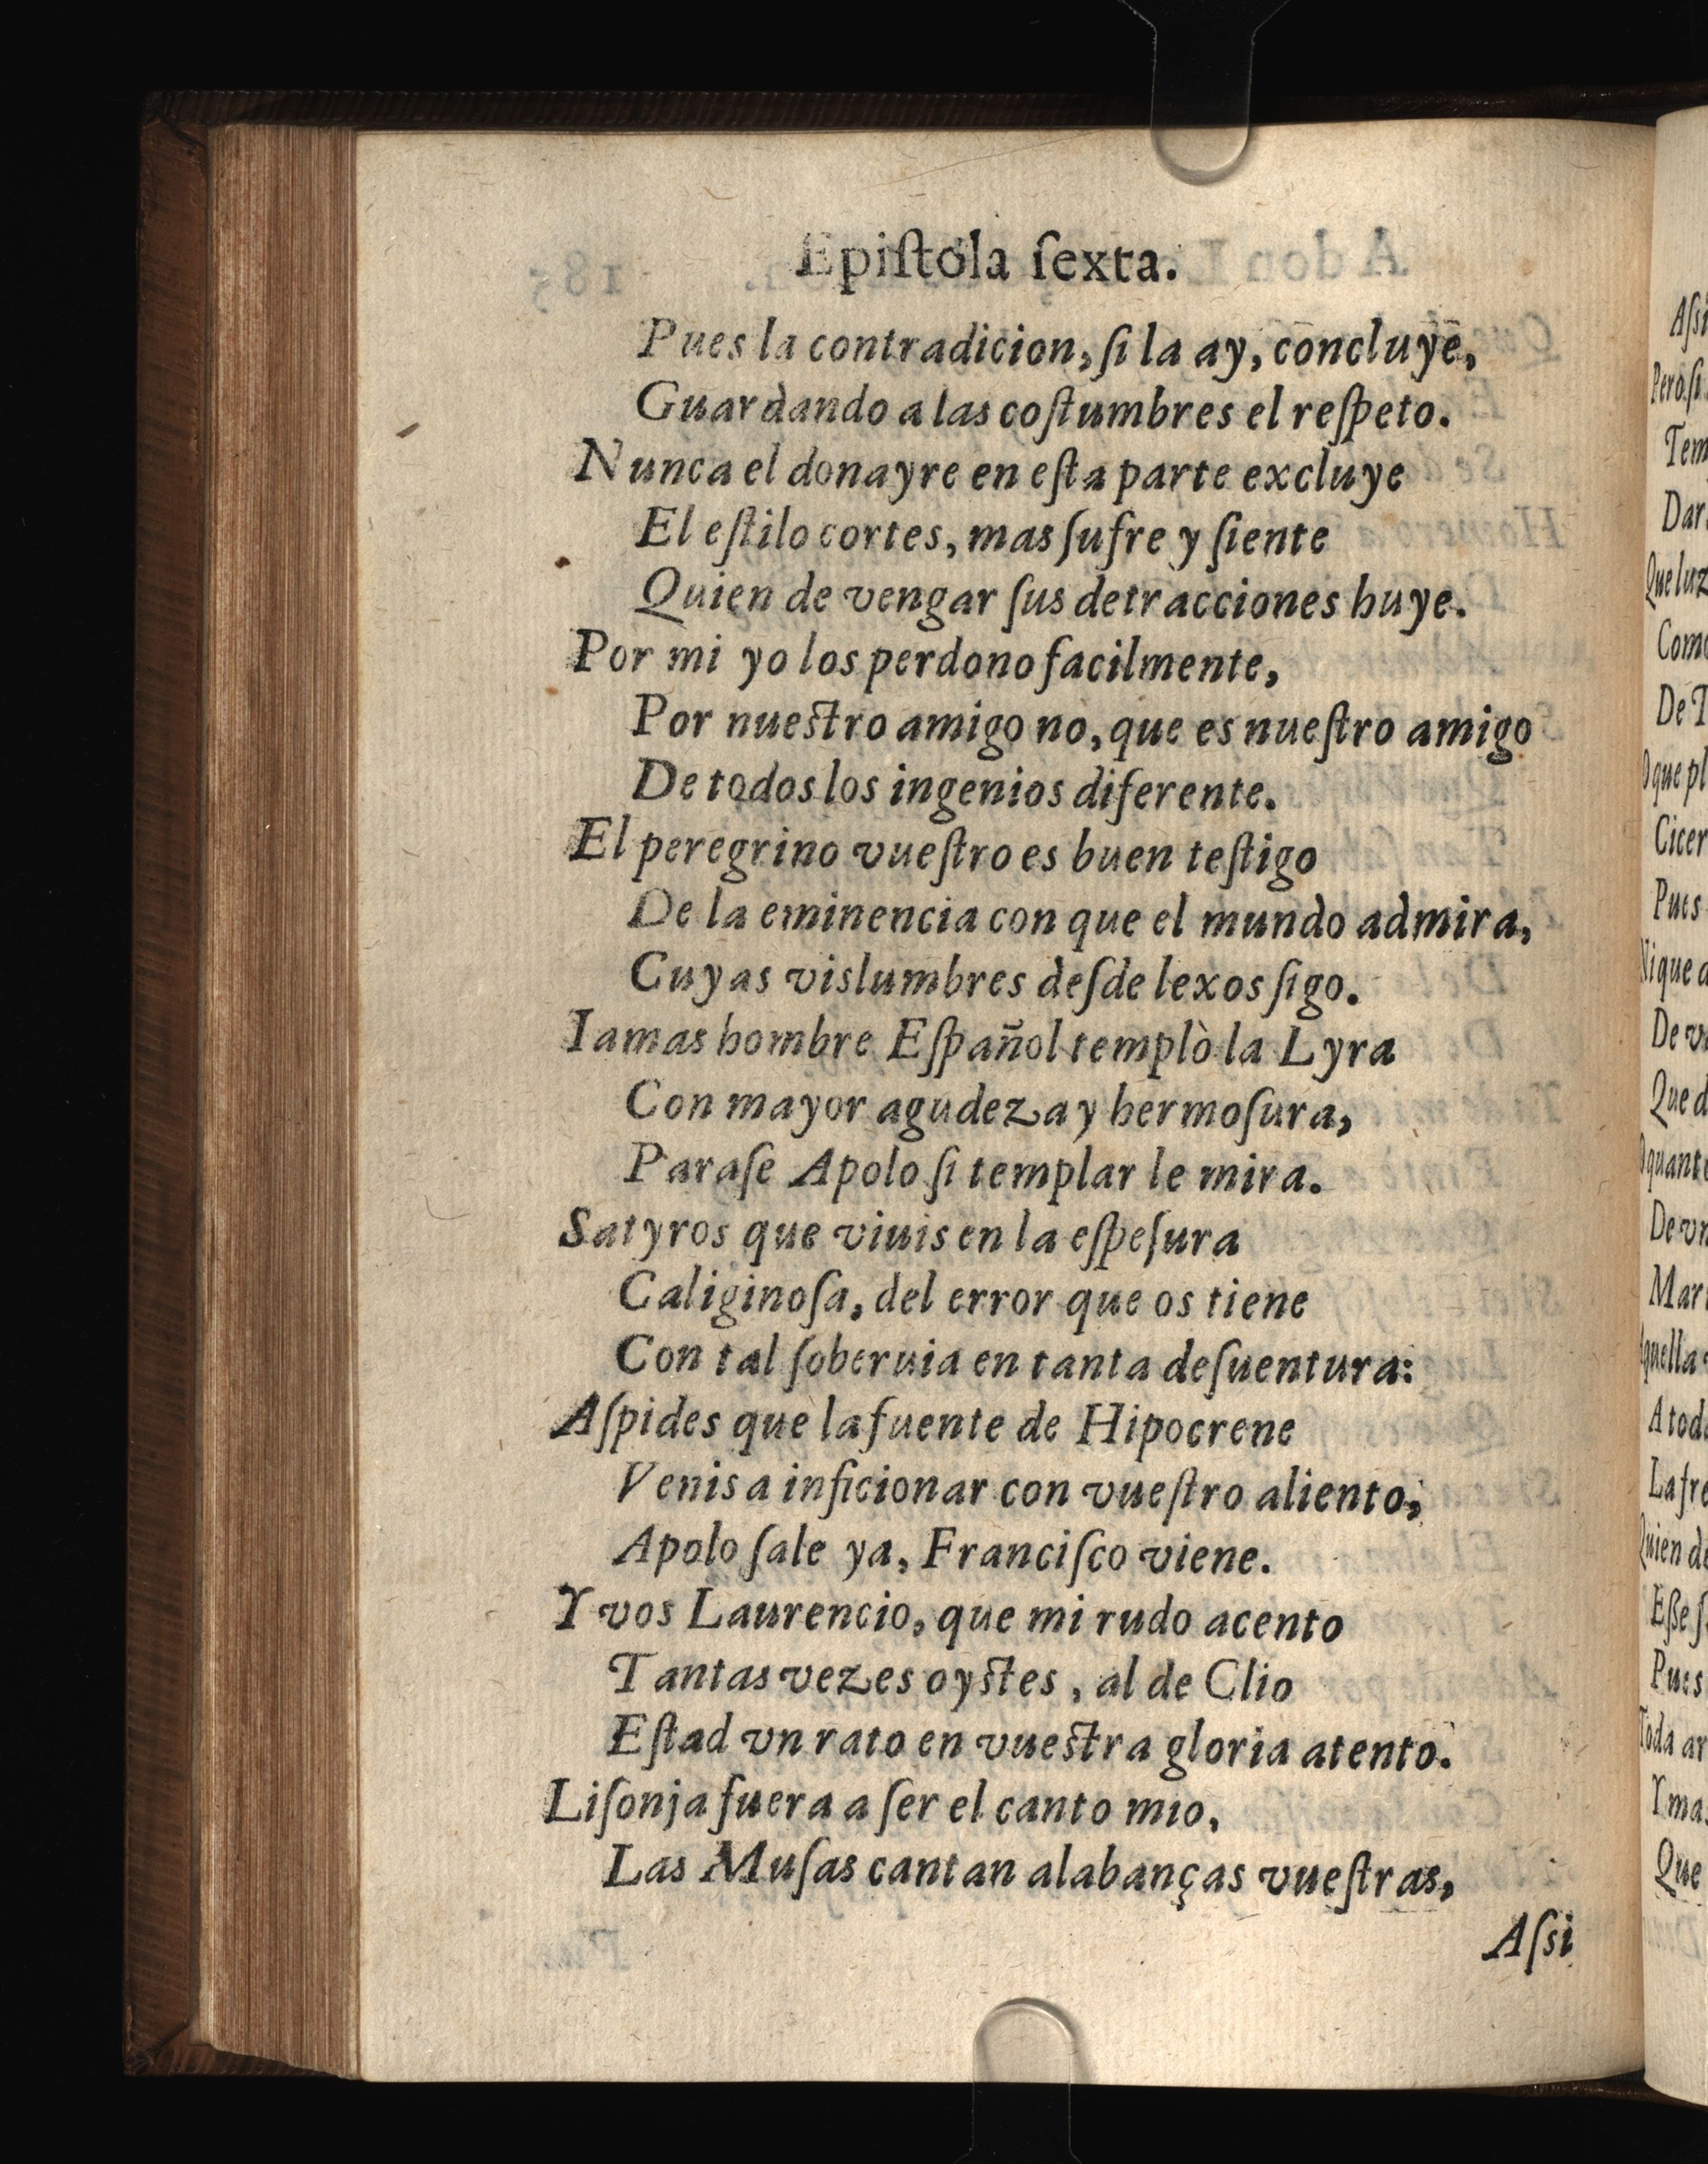 Epiſtola ſexta.
Pues la contradicion, ſi la ay, concluyē,
Guardando a las coſtumbres el reſpeto.
Nunca el donayre en eſta parte excluye
El eſtilo cortes, mas ſufre y ſiente
Quien de vengar ſus detracciones huye.
Por mi yo los perdono facilmente,
Por nueſtro amigo no, que es nueſtro amigo
De todos los ingenios diferente.
El peregrino vueſtro es buen teſtigo
De la eminencia con que el mundo admira,
Cuyas vislumbres deſde lexos ſigo.
Iamas hombre Eſpañol templò la Lyra
Con mayor agudeza y hermoſura,
Paraſe Apolo ſi templar le mira.
Satyros que viuis en la eſpeſura
Caliginoſa, del error que os tiene
Con tal ſoberuia en tanta deſuentura:
Aſpides que la fuente de Hipocrene
Venis a inficionar con vueſtro aliento,
Apolo ſale ya, Franciſco viene.
Y vos Laurencio, que mi rudo acento
Tantas vezes oyſtes, al de Clio
Eſtad vn rato en vueſtra gloria atento.
Liſonja fuera a ſer el canto mio,
Las Muſas cantan alabanças vueſtras,
Aſsi
Aſsi
Pero ſi
Tem
Dar
Que luz
Com
De T
O que pl
Cicer
Pues
Ni que
De v
Que d
O quant
De vn
Mar
Aquella
A tod
La fre
Quien de
Eſſe ſ
Pues
Toda ar
Y ma
Que